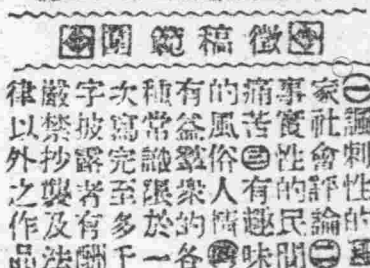 徵稿範圍
㊀諷刺性的國
家社會評論㊁
事實性的民間
痛苦㊂有趣味
的風俗人情㊃
有益羣衆的各
種常識限於一
次寫完至多千
字披露者有酬
嚴禁抄襲及法
律以外之作品